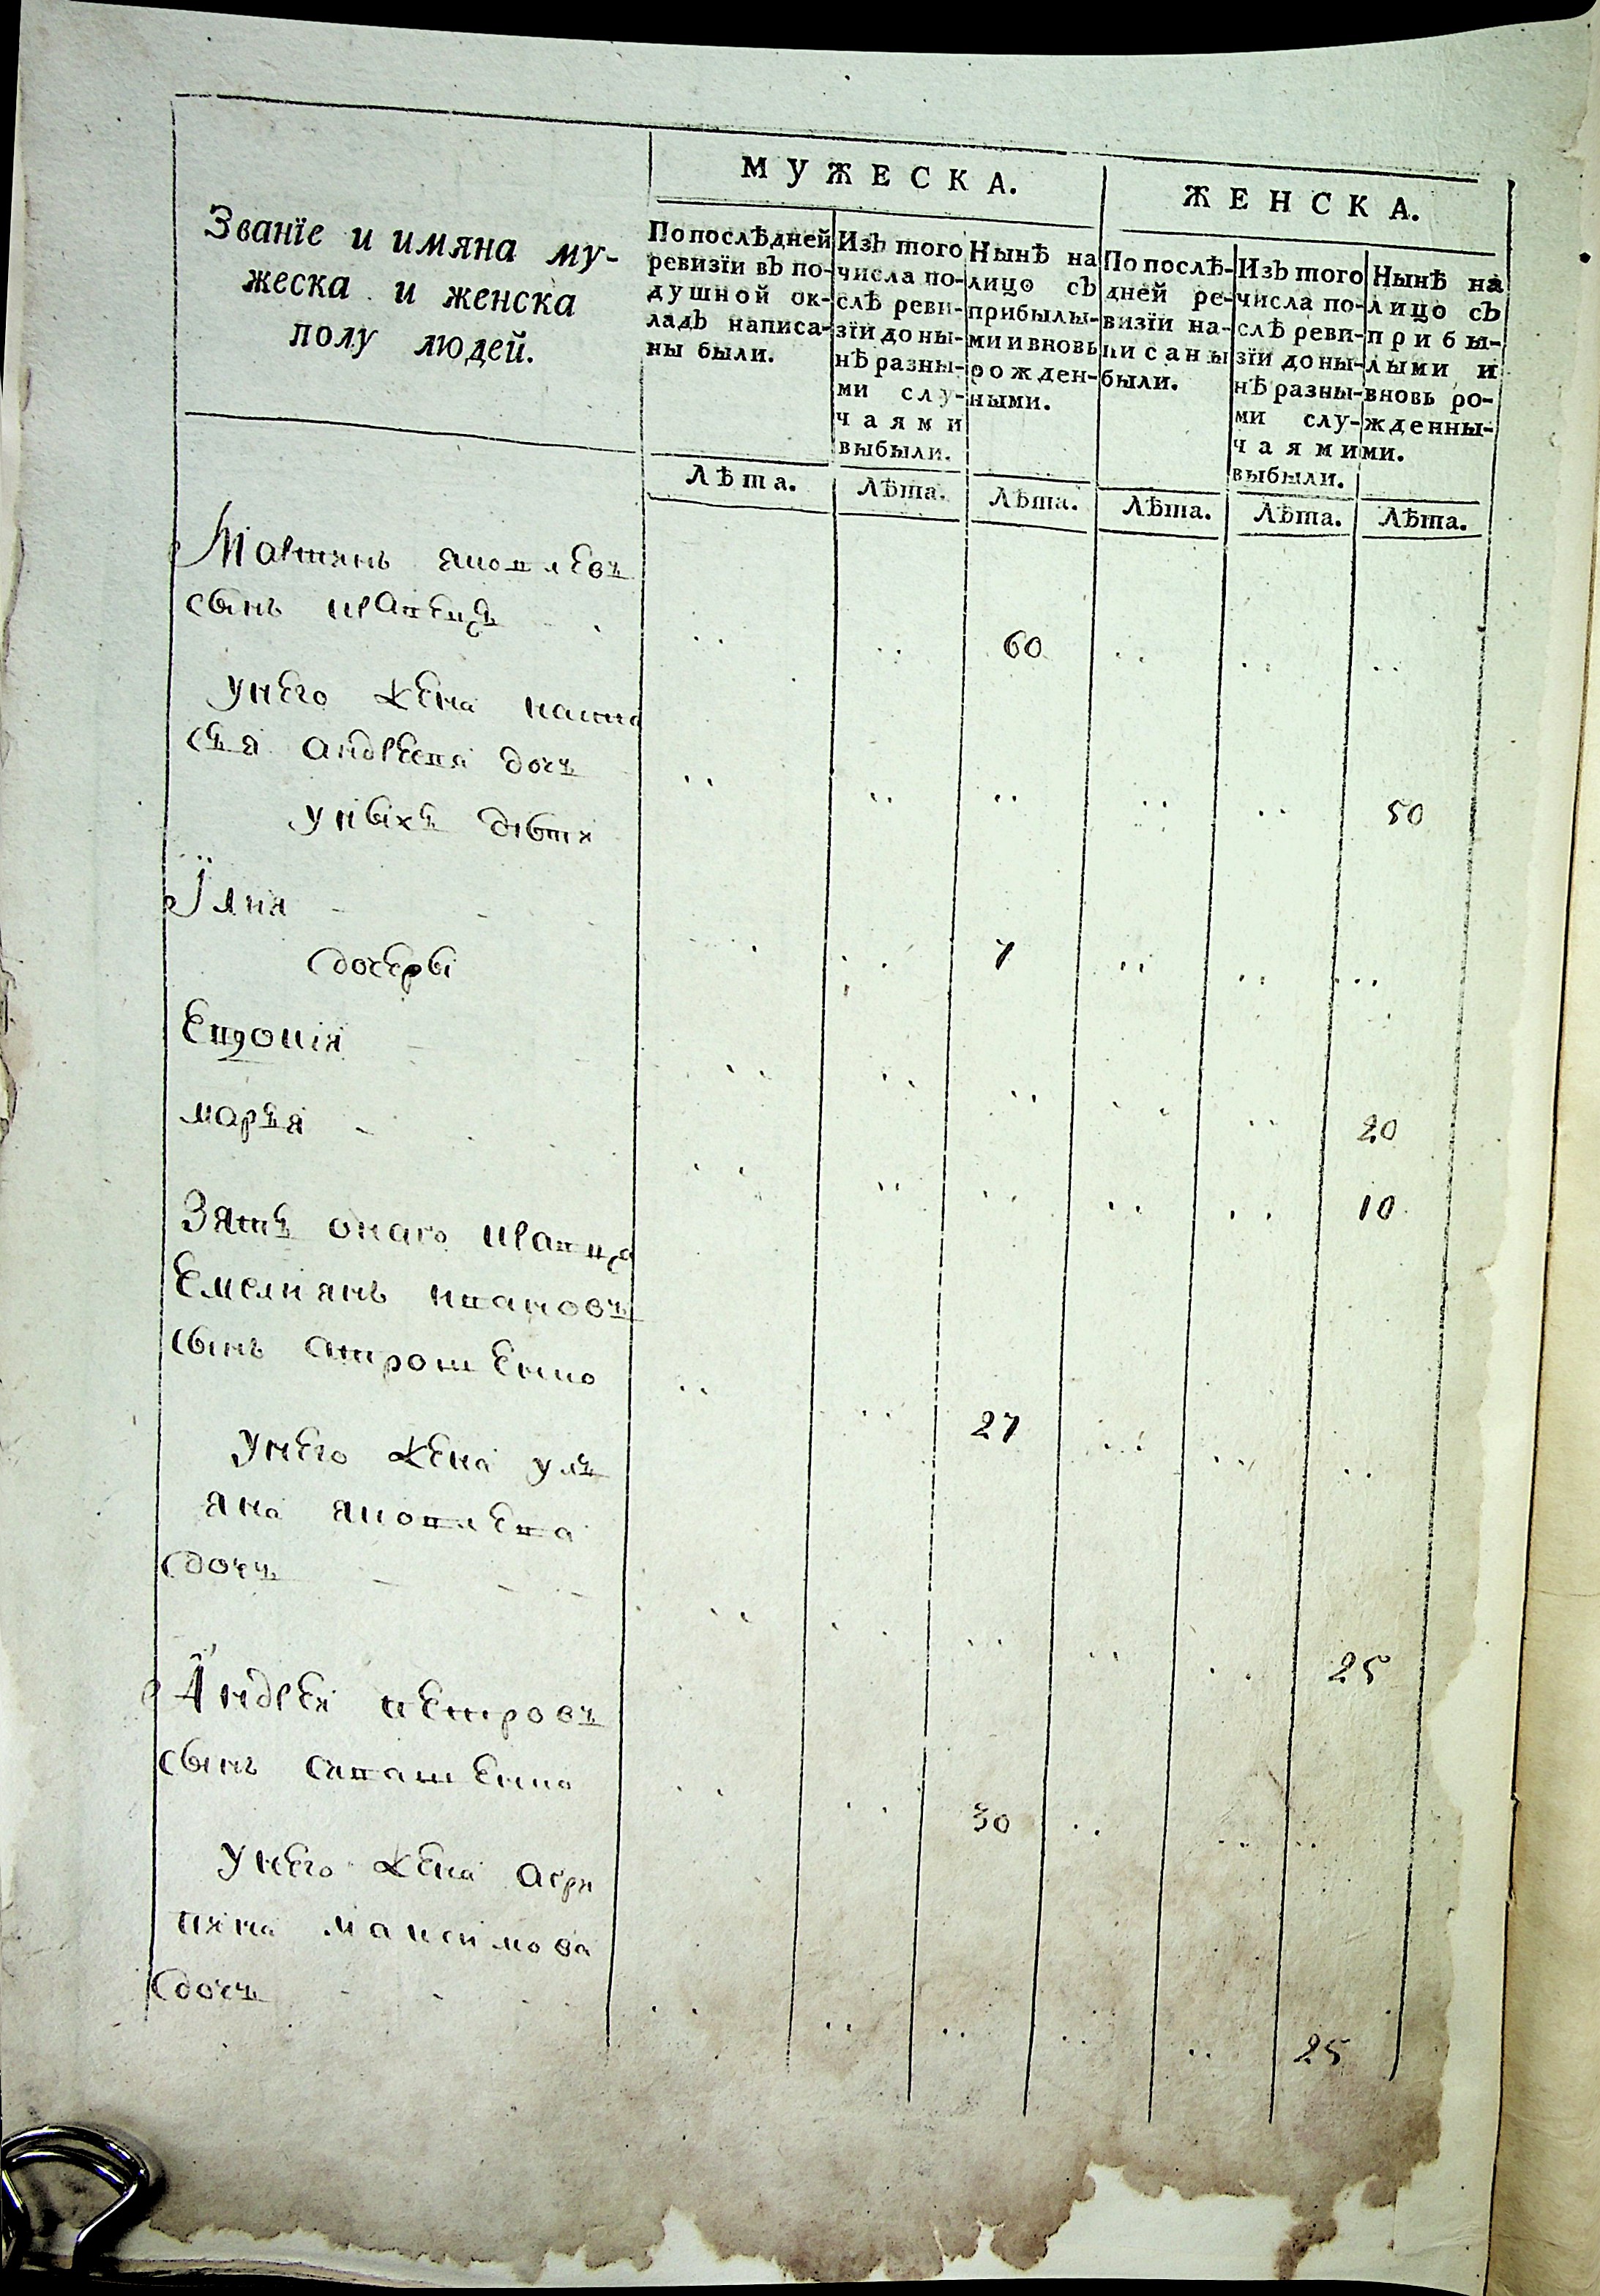 МУЖЕСКА.
ЖЕНСКА.
Званїе и имяна му-
жеска и женска
полу людей.
По послѣдней
ревизїи въ по-
душной ок-
ладъ написа-
ны были.
Изъ того
числа по-
слѣ реви-
зїи до ны-
нѣ разны-
ми слу-
чаями
выбыли.
Нынѣ на
лицо съ
прибылы-
ми и вновь
рожден-
ными.
По послѣ-
дней ре-
визїи на-
писаны
были.
Изъ того
числа по-
слѣ реви-
зїи до ны-
нѣ разны-
ми слу-
чаями
выбыли.
Нынѣ на
лицо съ
прибы-
лыми и
вновь ро-
жденны-
ми.
Лѣта. Лѣта. Лѣта. Лѣта. Лѣта. Лѣта.
яковлевъ
сынъ 60
унего жена наста
сья андреева дочь 50
унихъ дѣти
7
дочери
Евдокия 20
марья 10
Зять онаго
Емелиянъ ивановъ
сынъ Атрошенко 27
унего жена уль
яна яковлева
дочь 25
Андрей петровъ
сынъ савашенко 30
унего жена агри
пина максимова
дочь 25